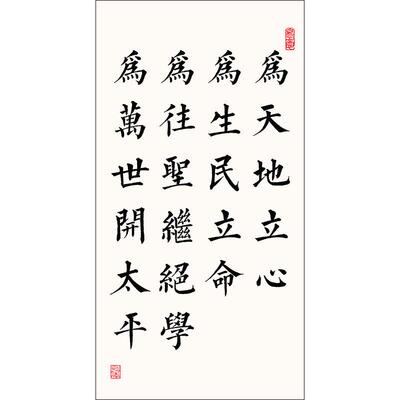 爲天地立心
爲生民立命
爲往聖繼絕學
爲萬世開太平